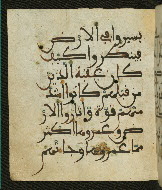 يسيروا في الارض
فينظروا كيف
كان عقبة الذين
من قبلهم كانوا اشد
منهم قوة واثاروا الا
رض وعمروها اكثر
مما عمروها وجاءتهم